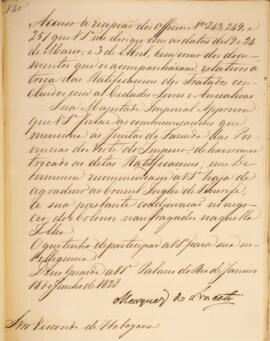 Accuso a recepção dos Officios Nos 248, 249, e
251 que VS. me dirigio com as datas de 9 e 24
de Março, e 3 de Abril, bem como dos docu
mentos que os acompanharam, relativos á
troca das Ratificações dos Tratados
concluidos com as Cidades Livres e Anseaticas
Sua Magestade Imperial Approva
que VS. fizesse as communicações que
menciona ás Juntas da Fazenda das Pro
vincias do Norte do Imperio, de haverem-se
trocado as ditas Ratificações; e me
recommenda a VS. haja de
agradecer ao Consul Inglez de Tenerife
a sua prestante coadjuvação no nego
cio dos Colonos naufragados naquella
Ilha.
O que tenho de participar a VS. para sua in
telligencia.
Deus Guarde a VS. Palacio do Rio de Janeiro
de Junho de 1828
Marquez do Aracaty
Snr Visconde de Itabayana